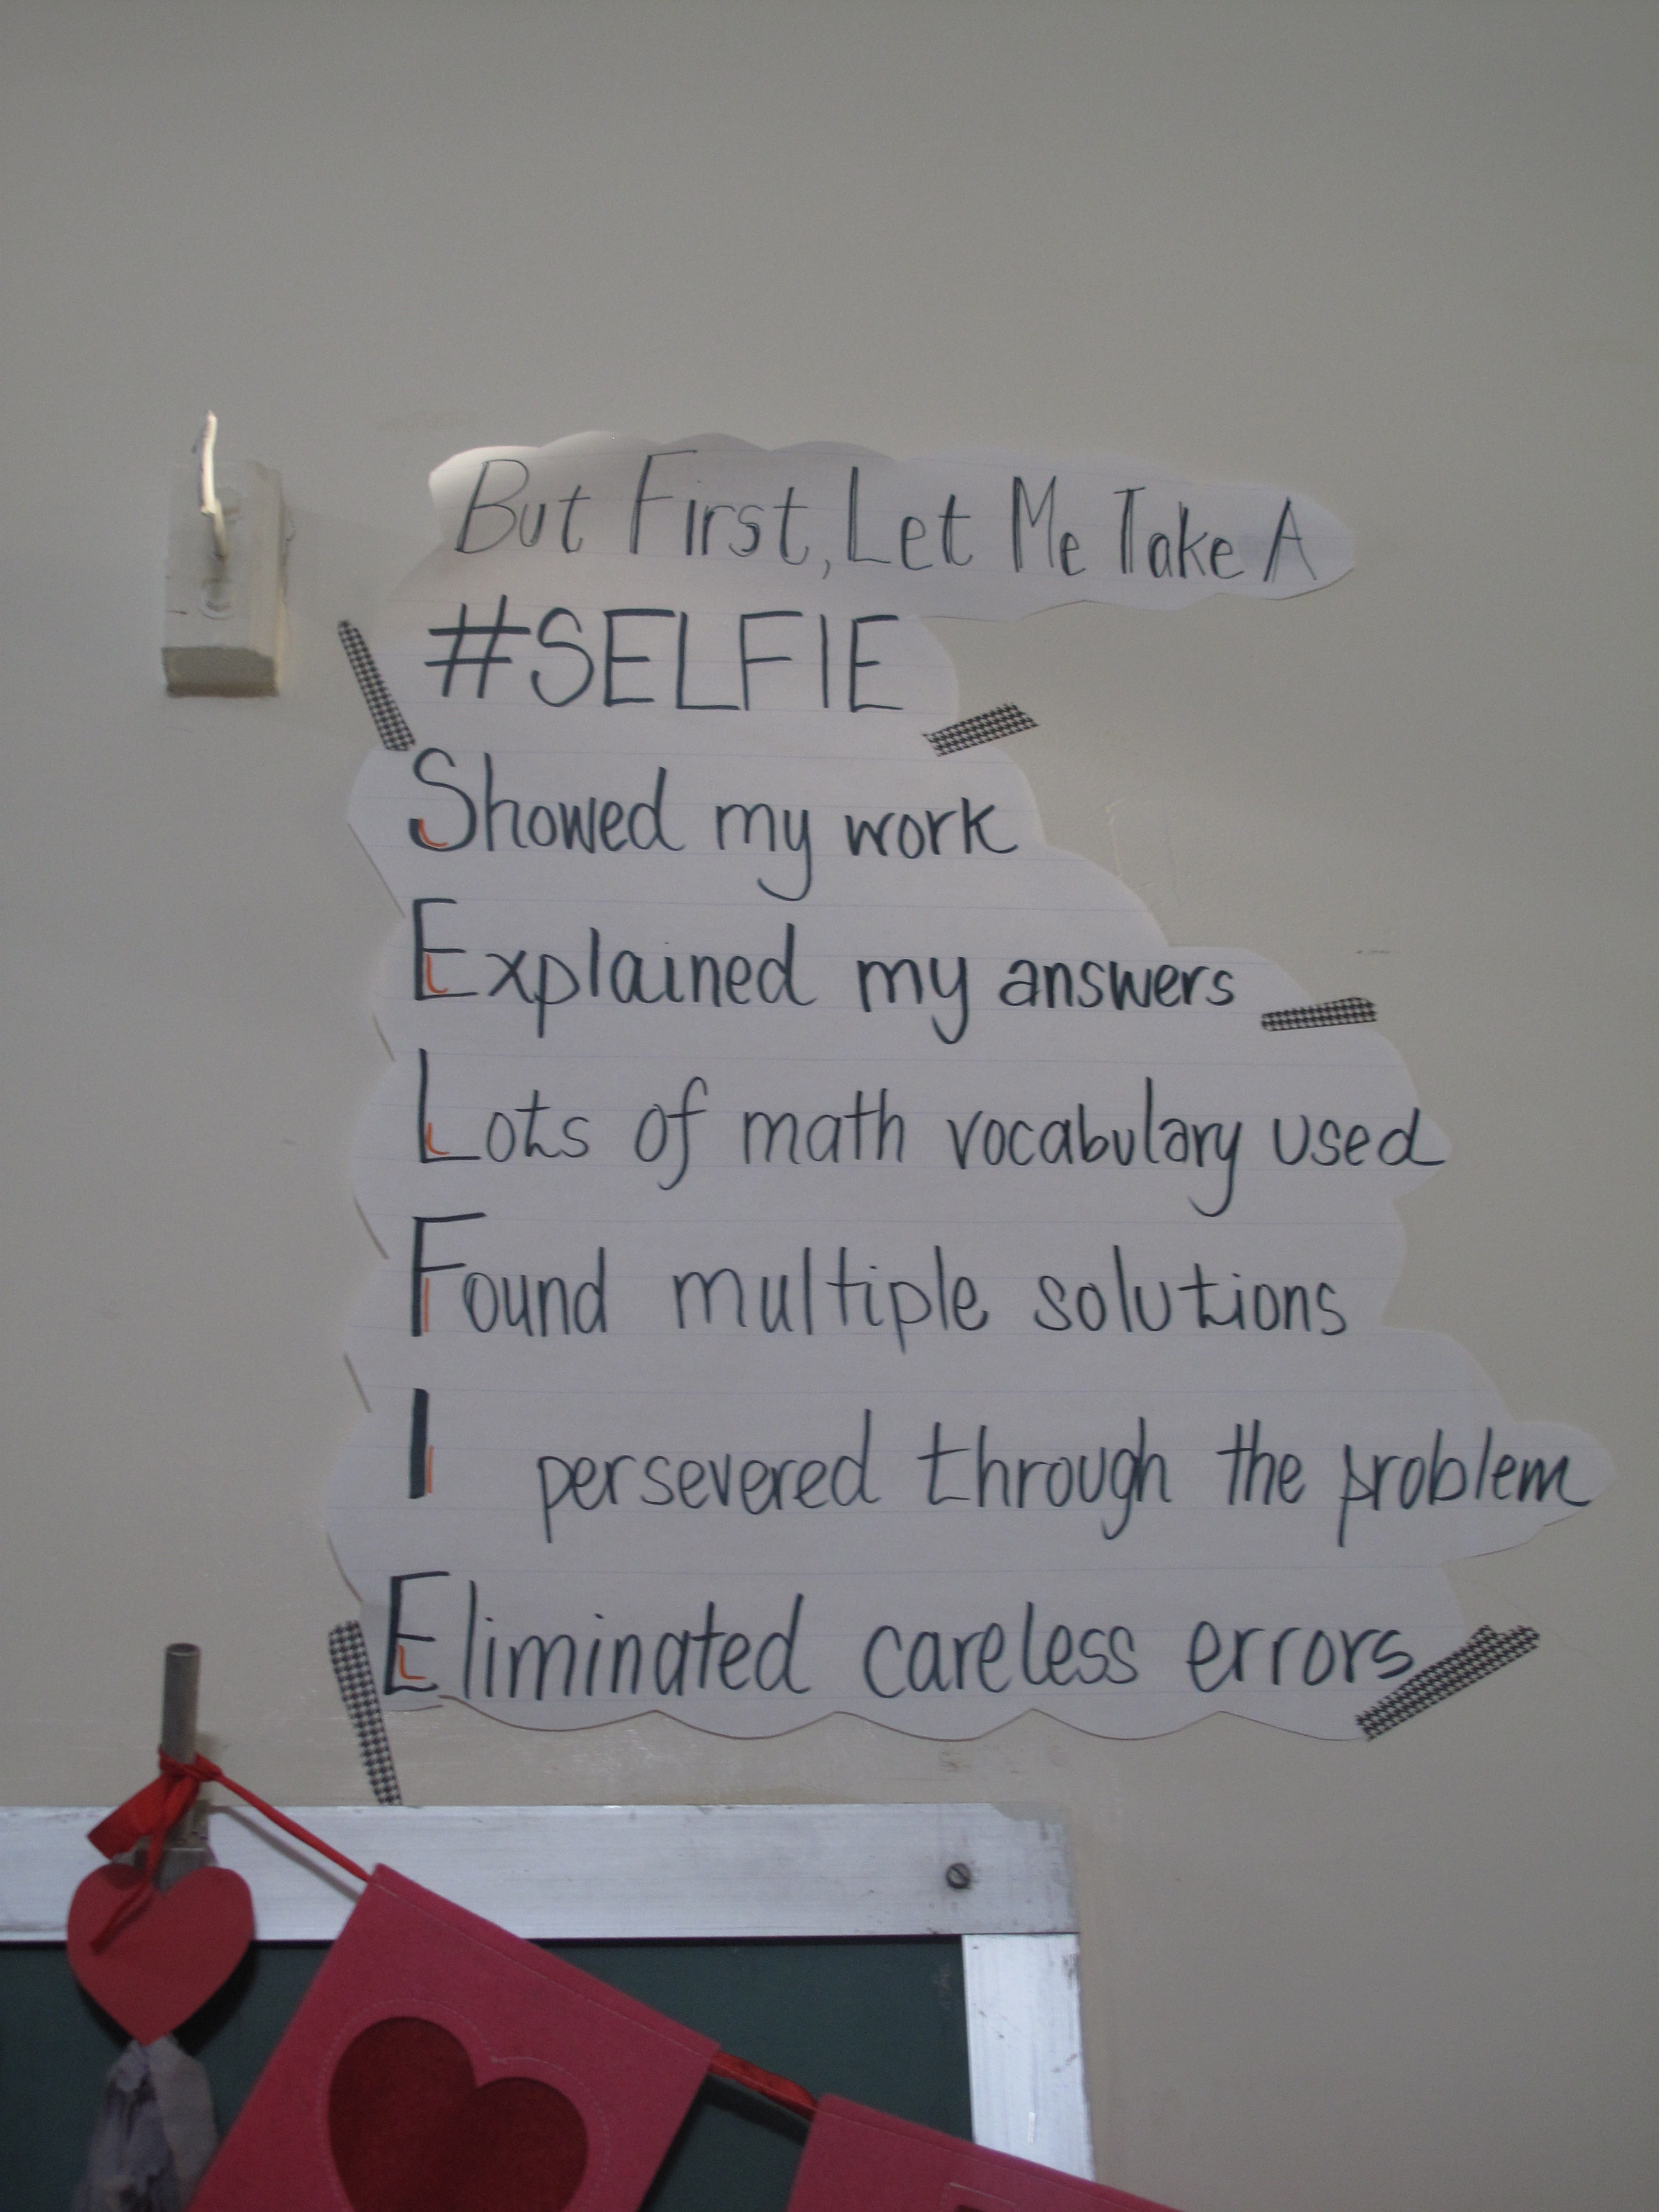 But First, Let Me Take A
#SELFIE
Showed my work
Explained my answers
Lots of math vocabulary used
Found multiple solutions
I persevered through the problem
Eliminated careless errors